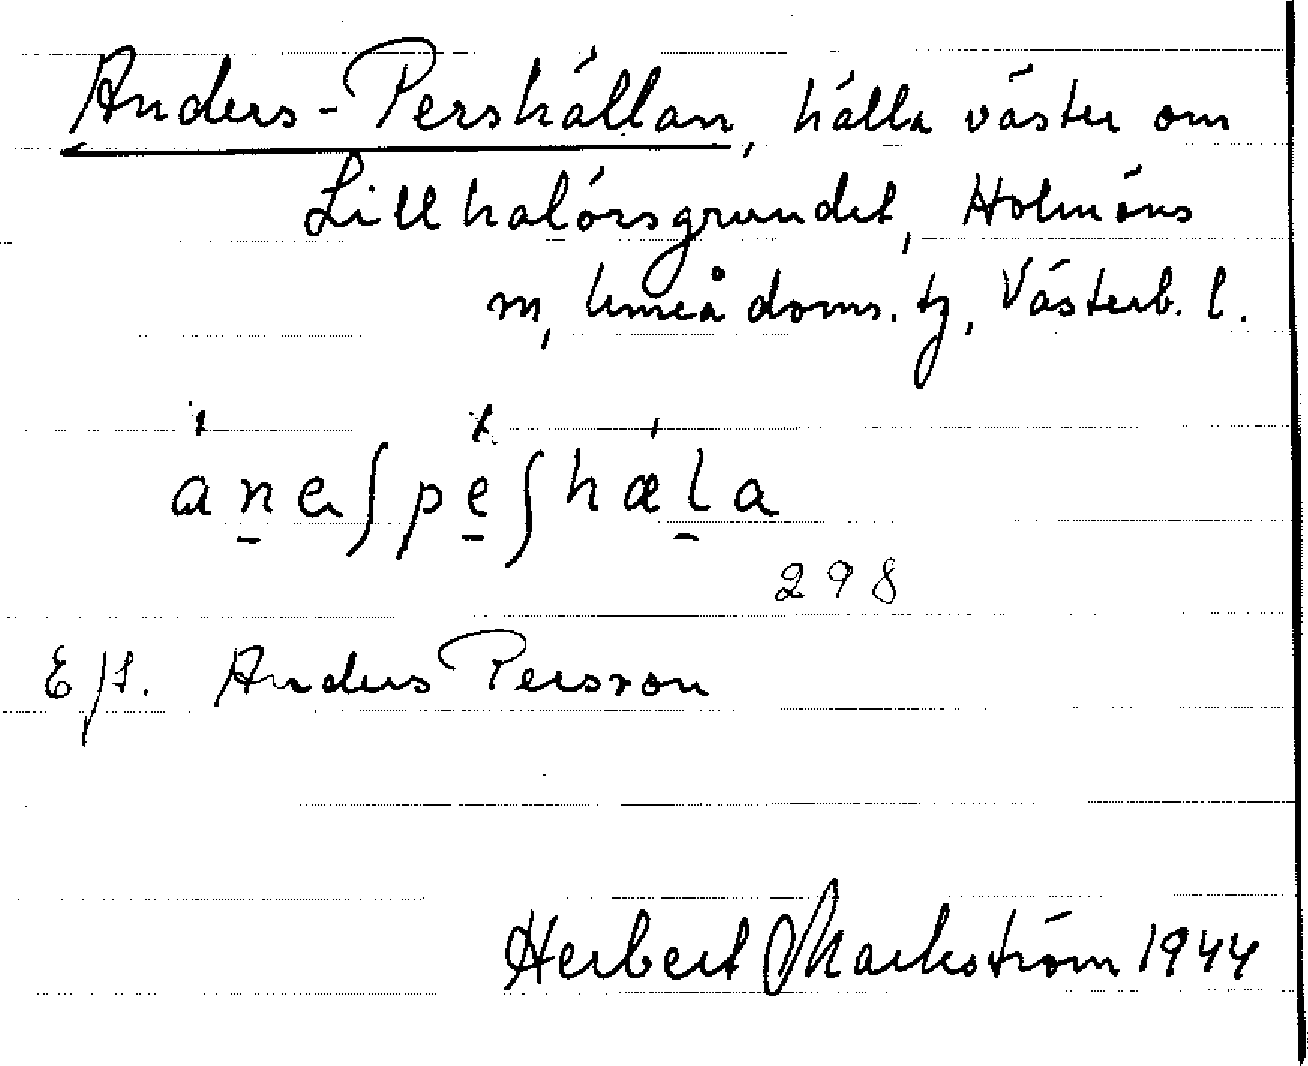 Anders-Pershällan, hälla väster om
Lillhalörsgrundet, Holmöns
m, Umeå doms. tg, Västerb. l.
aneʃpeʃhæla
298
E/f. Anders Persson
Herbert Markström 1944